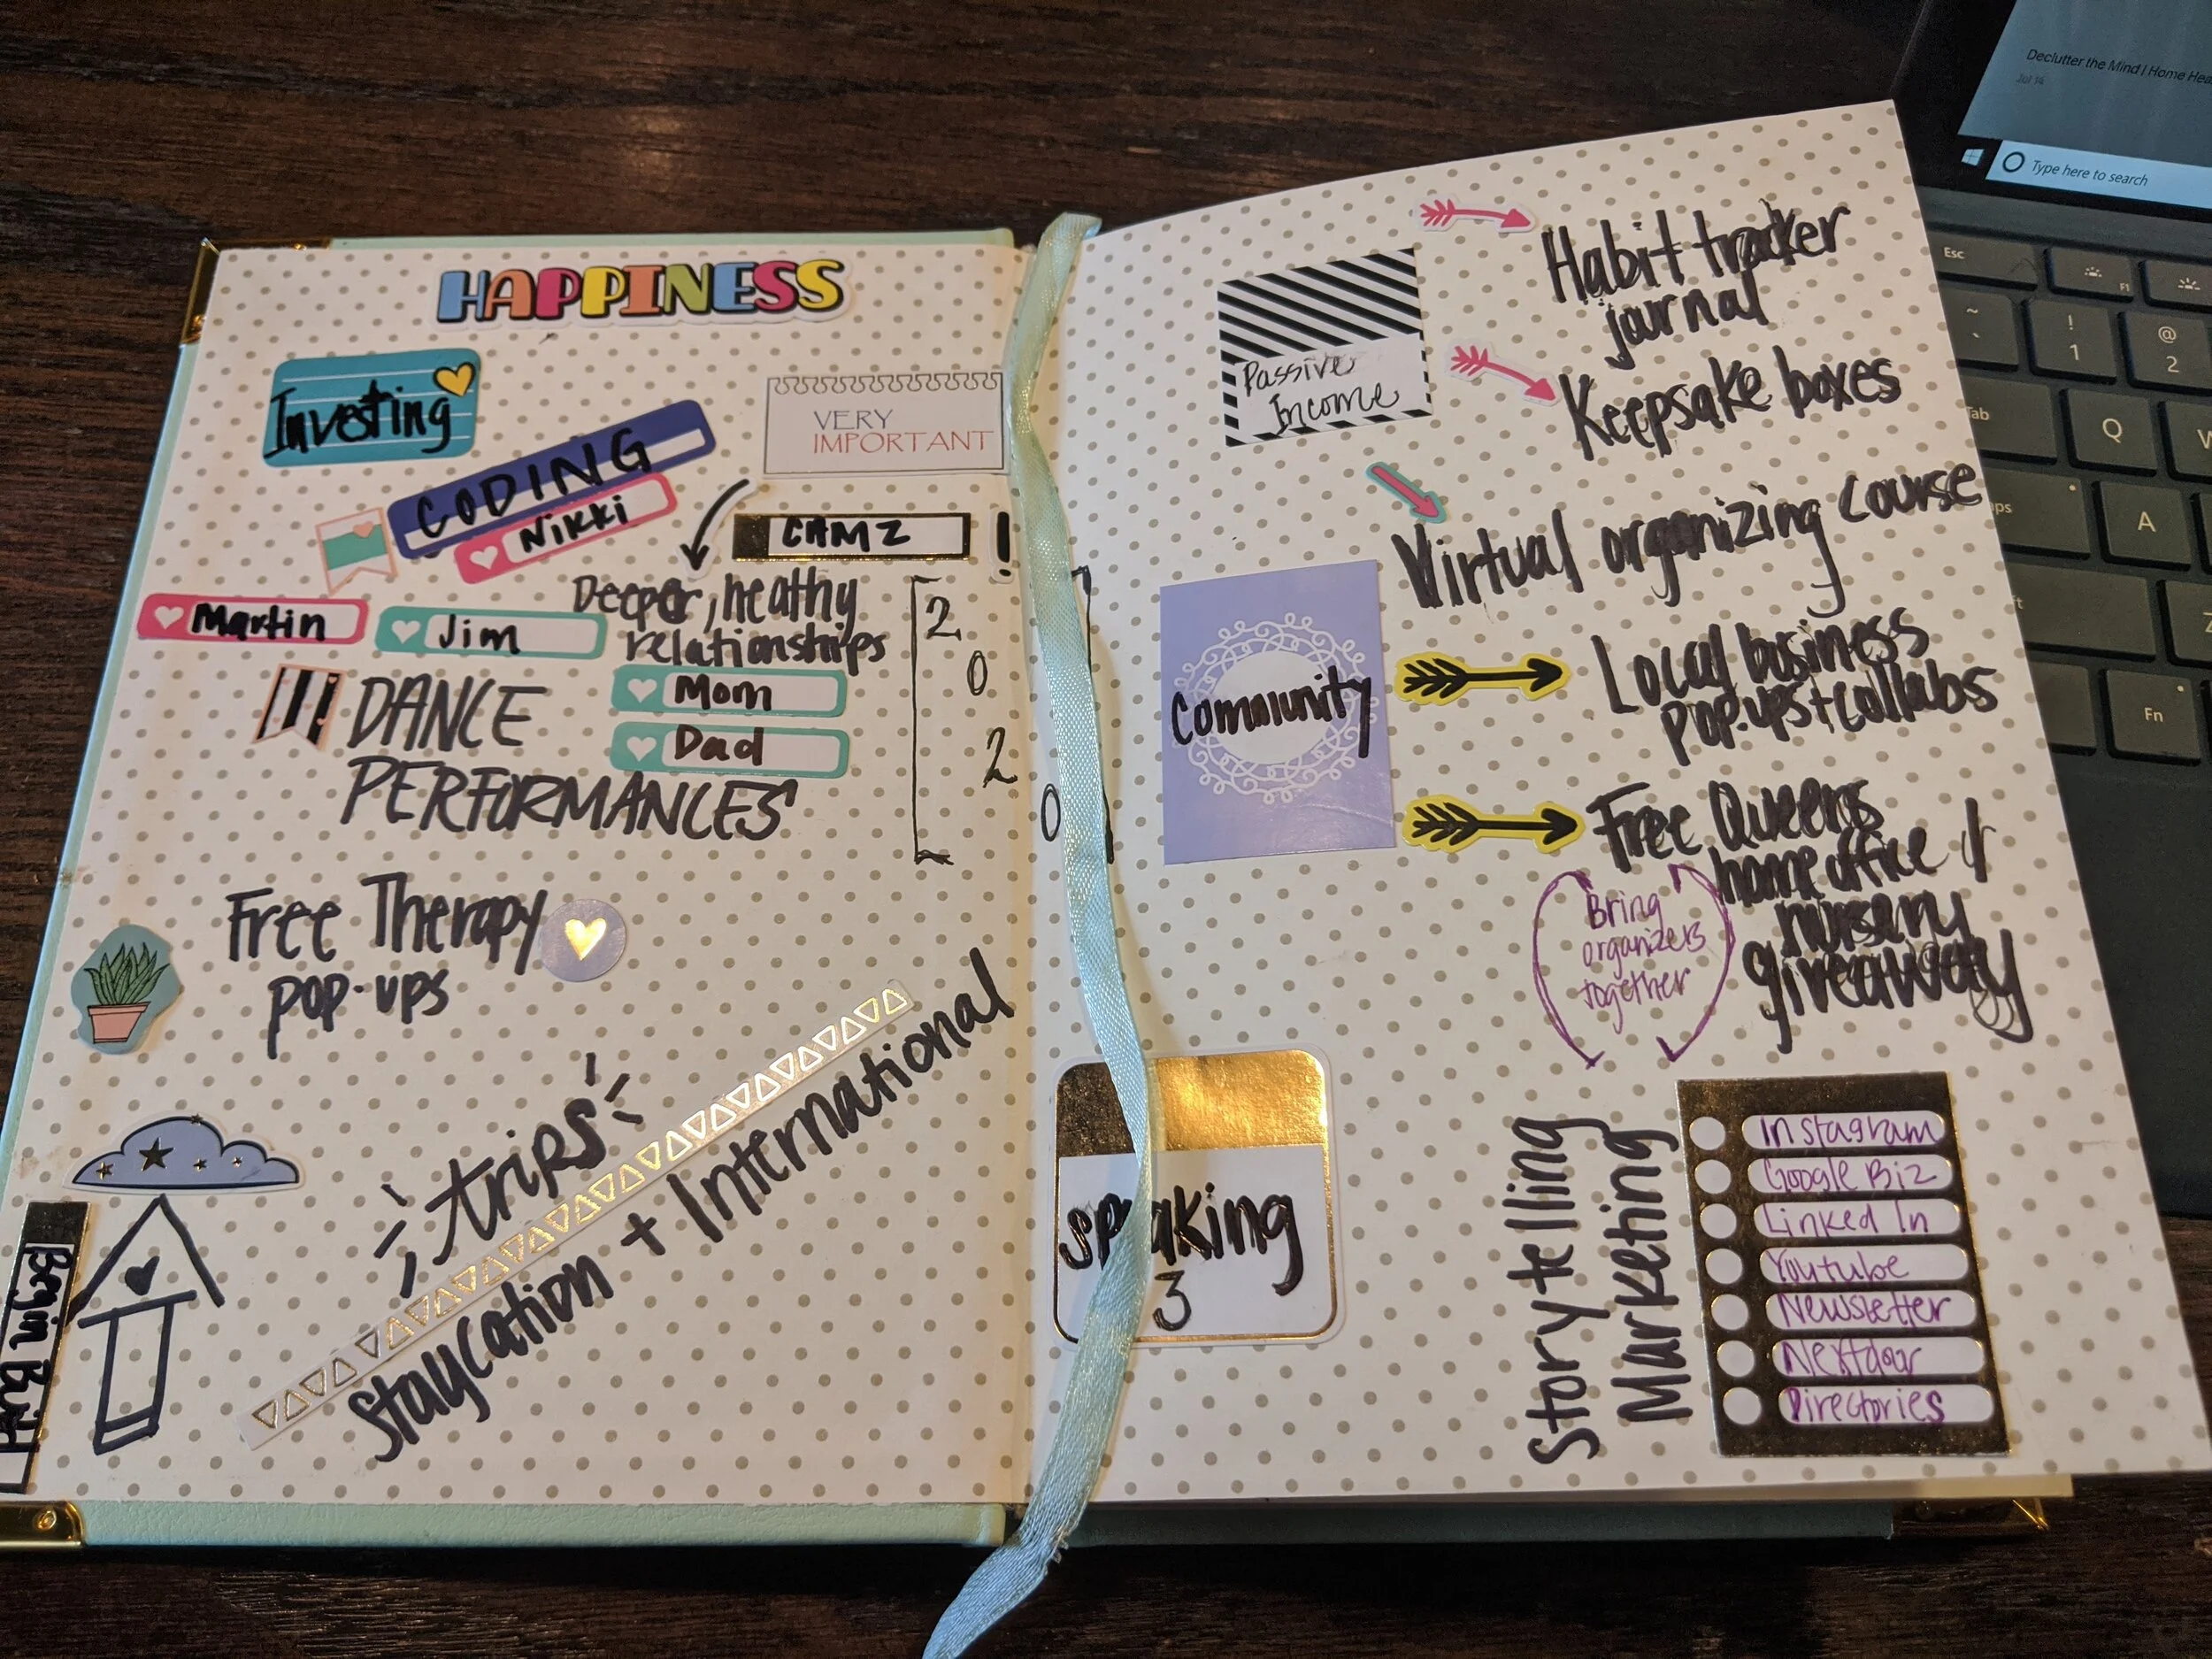 HAPPINESS
Investing
CODING
Nikki
VERY
IMPORTANT
CAMZ
!
Martin
Jim
Deeper, heathy
relationships
Mom
Dad
2
0
2
0
DANCE
PERFORMANCES
Free Therapy
pop-ups
trips
Staycation + International
Passive
Income
Habit tracker
journal
Keepsake boxes
Virtual organizing course
Community
Local business
pop-ups + collabs
Free Queens
home office &
nursery
giveaway
Bring
organizers
together
Speaking
3
Storytelling
Marketing
Instagram
Google Biz
Linked In
Youtube
Newsletter
Nextdoor
Directories
Declutter the Mind | Home Hea
Jul 14
Type here to search
Esc
F1
~
`
!
1
@
2
Tab
Q
W
A
Z
Fn